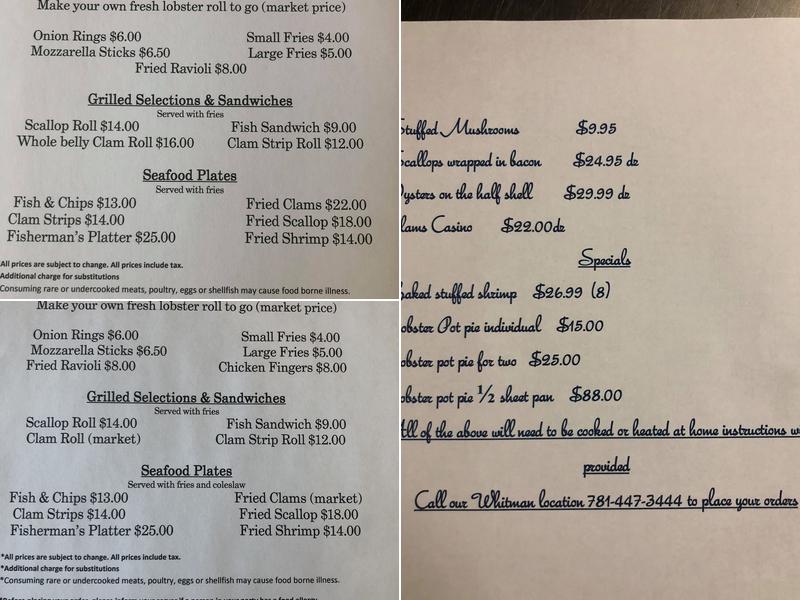 Make your own fresh lobster roll to go (market price)
Onion Rings $6.00 Small Fries $4.00
Mozzarella Sticks $6.50 Large Fries $5.00
Fried Ravioli $8.00
Grilled Selections & Sandwiches
Served with fries
Scallop Roll $14.00 Fish Sandwich $9.00
Whole belly Clam Roll $16.00 Clam Strip Roll $12.00
Seafood Plates
Served with fries
Fish & Chips $13.00 Fried Clams $22.00
Clam Strips $14.00 Fried Scallop $18.00
Fisherman's Platter $25.00 Fried Shrimp $14.00
All prices are subject to change. All prices include tax.
Additional charge for substitutions
Consuming rare or undercooked meats, poultry, eggs or shellfish may cause food borne illness.
Make your own fresh lobster roll to go (market price)
Onion Rings $6.00 Small Fries $4.00
Mozzarella Sticks $6.50 Large Fries $5.00
Fried Ravioli $8.00 Chicken Fingers $8.00
Grilled Selections & Sandwiches
Served with fries
Scallop Roll $14.00 Fish Sandwich $9.00
Clam Roll (market) Clam Strip Roll $12.00
Seafood Plates
Served with fries and coleslaw
Fish & Chips $13.00 Fried Clams (market)
Clam Strips $14.00 Fried Scallop $18.00
Fisherman's Platter $25.00 Fried Shrimp $14.00
*All prices are subject to change. All prices include tax.
*Additional charge for substitutions
*Consuming rare or undercooked meats, poultry, eggs or shellfish may cause food borne illness.
Stuffed Mushrooms $9.95
Scallops wrapped in bacon $24.95 dz
Oysters on the half shell $29.99 dz
lams Casino $22.00dz
Specials
Baked stuffed shrimp $26.99 (8)
obster Pot pie individual $15.00
obster pot pie for two $25.00
obster pot pie ½ sheet pan $88.00
All of the above will need to be cooked or heated at home instructions w
provided
Call our Whitman location 781-447-3444 to place your orders